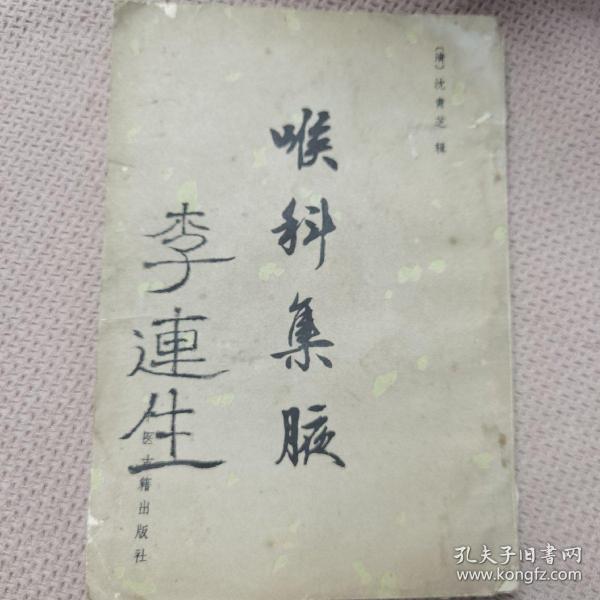 〔清〕沈青芝 辑
喉科集腋
李連生
医古籍出版社
孔夫子旧書网
www.kongfz.com